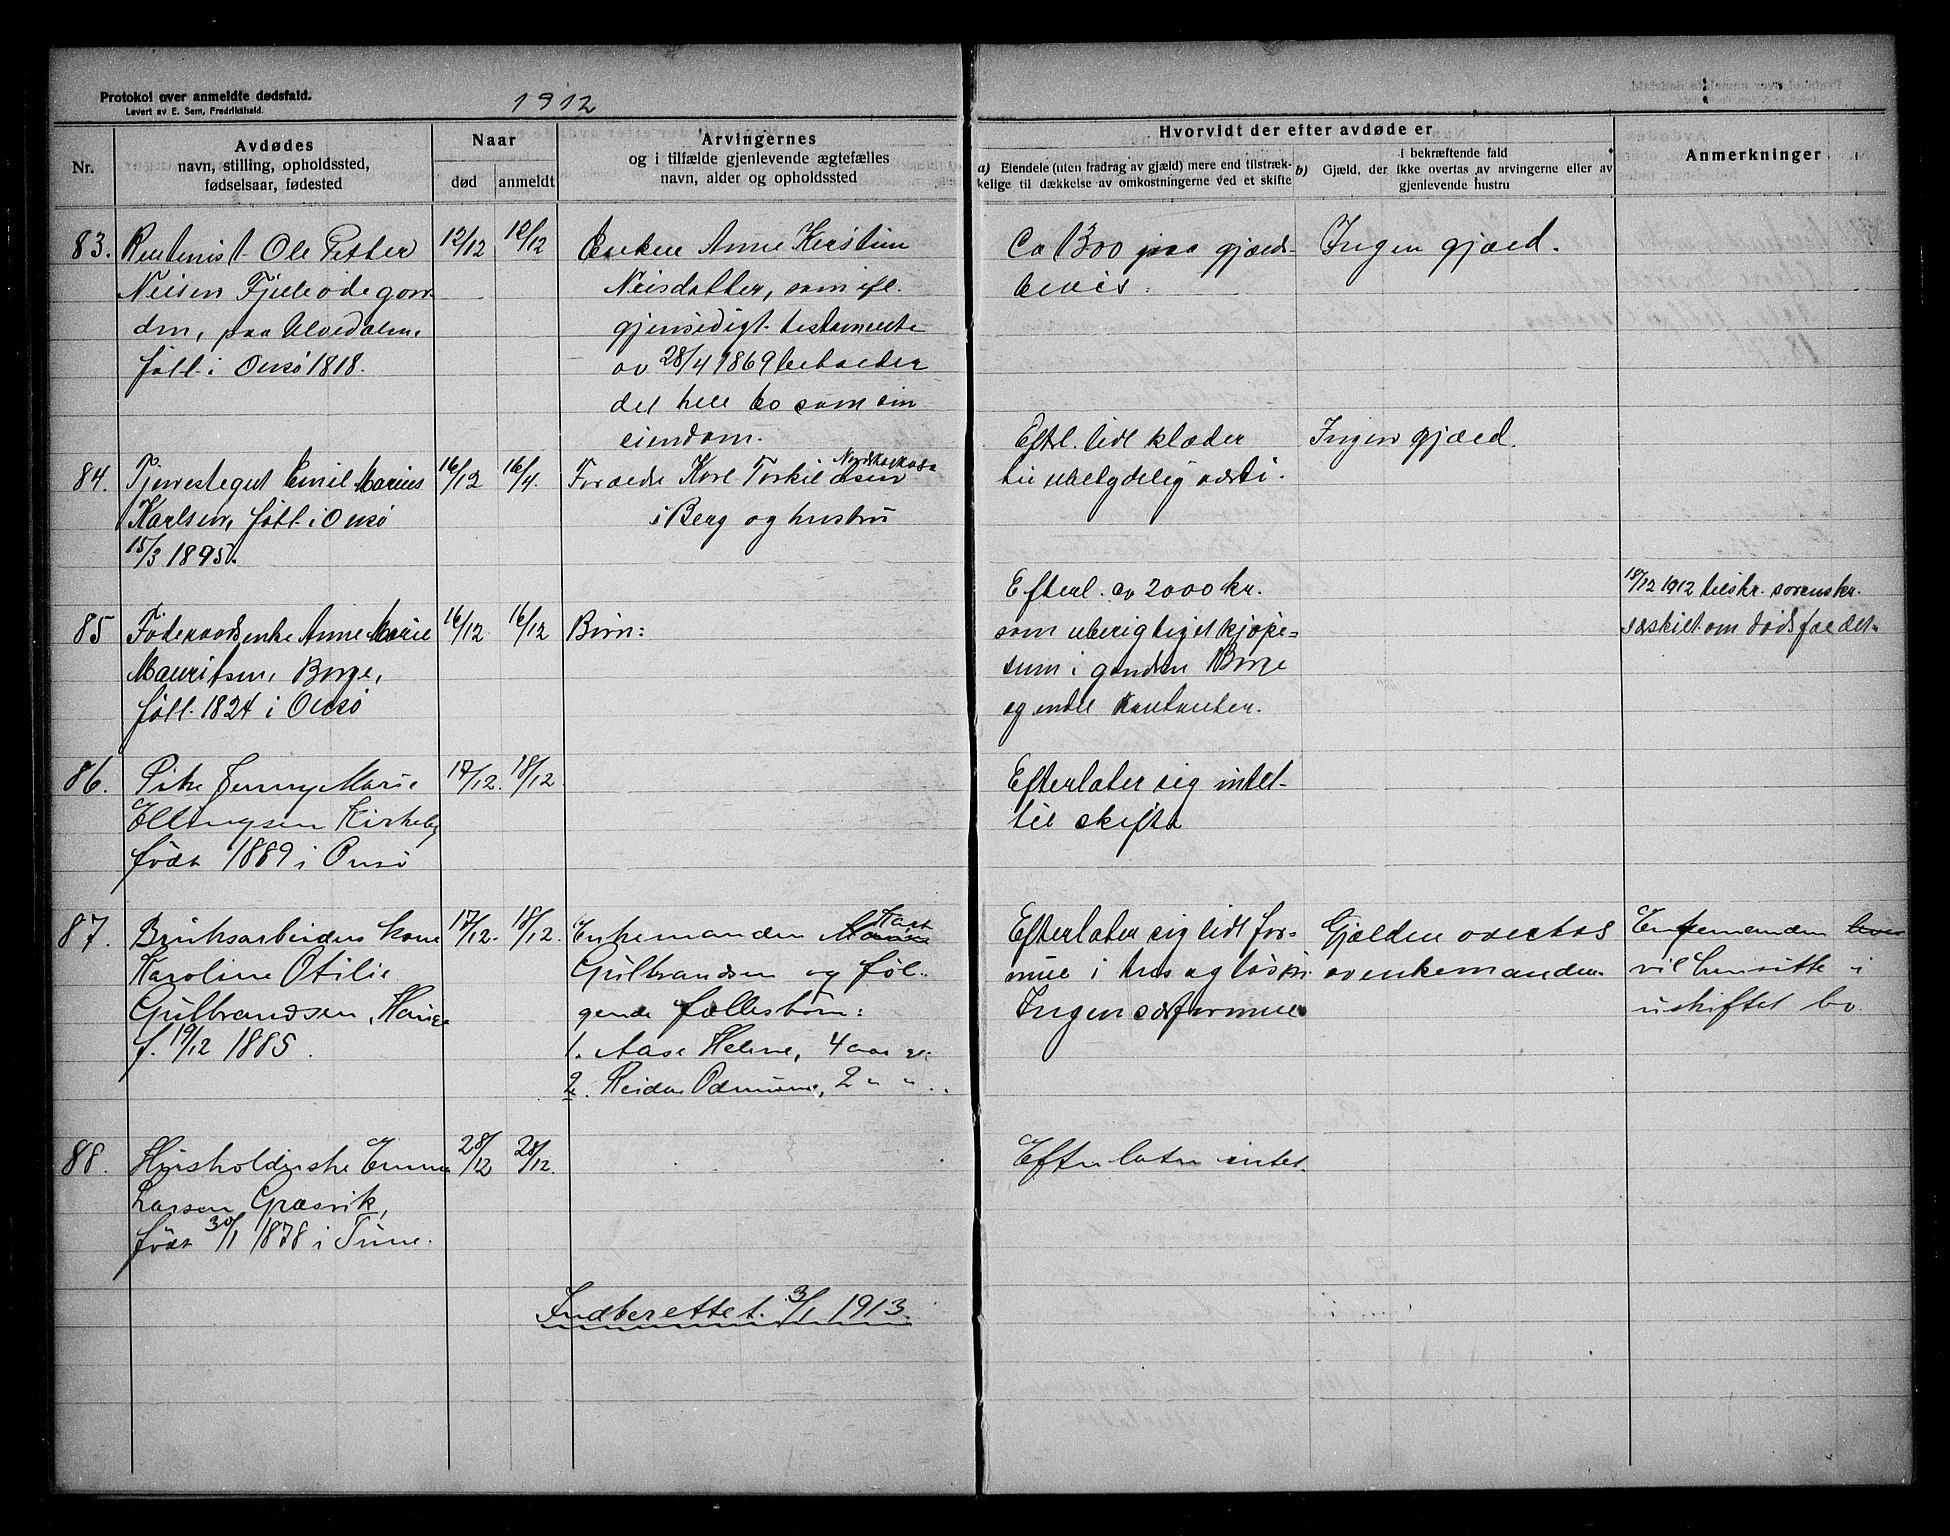 Protokol over anmeldte dødsfald.
Levert av E. Sem, Fredrikshald.
1912
Nr.
Avdødes
navn, stilling, opholdssted,
fødselsaar, fødested
Naar
død
anmeldt
Arvingernes
og i tilfælde gjenlevende ægtefælles
navn, alder og opholdssted
Hvorvidt der efter avdøde er
a) Eiendele (uten fradrag av gjæld) mere end tilstræk-
kelige til dækkelse av omkostningerne ved et skifte
b) Gjæld, der i bekræftende fald
ikke overtas av arvingerne eller av
gjenlevende hustru
Anmerkninger
83. Rentenist Ole Petter
Nilsen
den, paa Ulvedalen,
født i Onsø 1818.
12/12
12/12
Enken Anne Kirstine
Nilsdatter, som ifl.
gjensidigt testamente
av 28/4 1869 beholder
det hele bo som sin
eiendom.
Ca 1300 paa gjælds-
bevis.
Ingen gjæld.
84. Tjenestegut Emil Marius
Karlsen, født i Onsø
15/3 1895.
16/12
Forældre Karl Torkildsen
i Berg og hustru
Efterl. lidt klæder
til ubetydelig værdi.
Ingen gjæld.
85 Føderaadsenke Anne Marie
Mauritsen, Borge,
født 1824 i Onsø
16/12
16/12
Børn:
Efterl. ca 2000 kr.
som uberigtiget kjøpe-
sum i gaarden Borge
og endel kontanter.
18/12 1912 tilskr. sorenskr.
særskilt om dødsfaldet.
86. Pike Jenny Marie
Ellingsen Kirkeby
født 1889 i Onsø
17/12.
18/12.
Efterlater sig intet
til skifte
87. Bruksarbeiders kone
Karoline Otilie
Gulbrandsen, Hauge
f. 19/12 1885.
17/12.
18/12.
Enkemanden
Gulbrandsen og føl-
gende fællesbørn:
1. Aase Helene, 4 aar gl.
2. Reidar Odmund, 2 " " .
Efterlater sig lidt for-
mue i hus og løsøre
Ingen særformue
Gjælden overtas
av enkemanden.
Enkemanden
vil hensitte i
uskiftet bo
88. Husholderske Emma
Larsen Græsvik,
født 30/1 1878 i Tune.
28/12
28/12.
Efterlater intet.
Indberettet 3/1 1913.